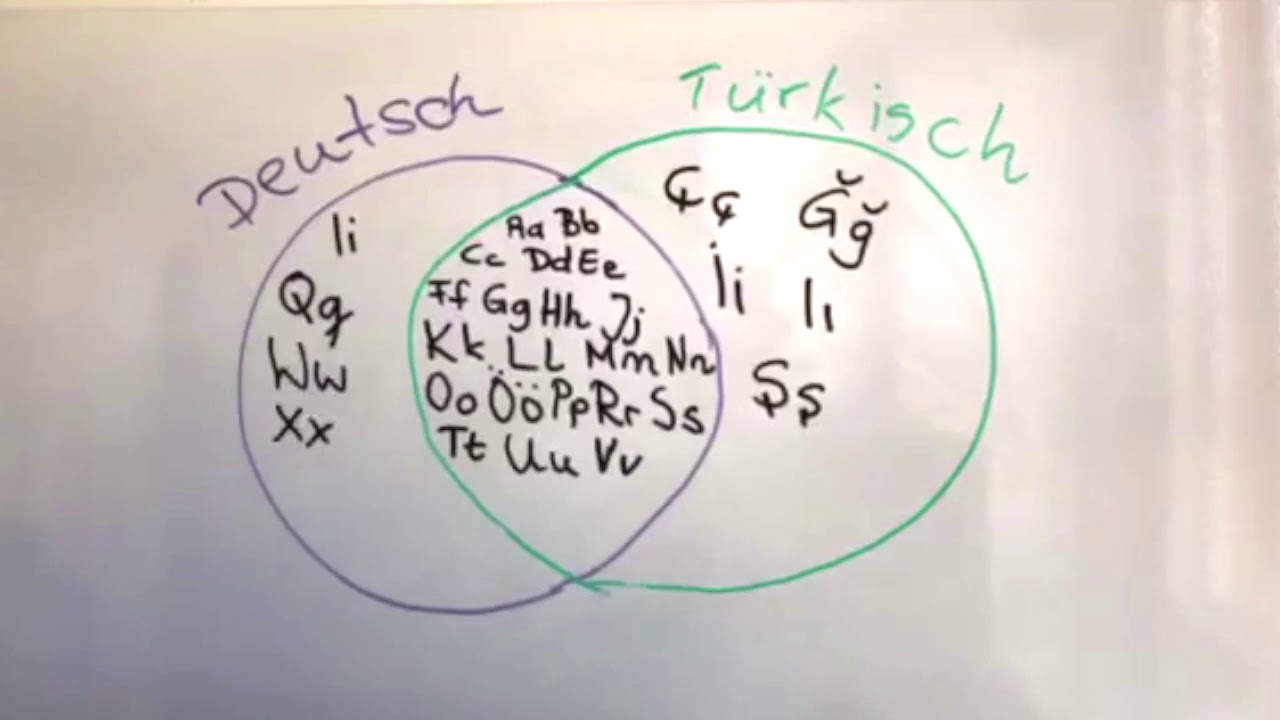 Deutsch
Türkisch
Ii
Qq
Ww
Xx
Aa Bb
Cc Dd Ee
Ff Gg Hh Jj
Kk Ll Mm Nn
Oo Öö Pp Rr Ss
Tt Uu Vv
Çç Ğğ
İi Iı
Şş